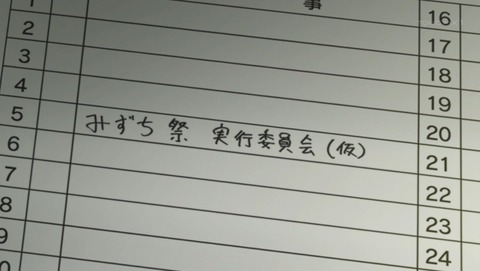 事
1
2
3
4
5 みずち祭 実行委員会(仮)
6
7
8
9
16
17
18
19
20
21
22
23
24